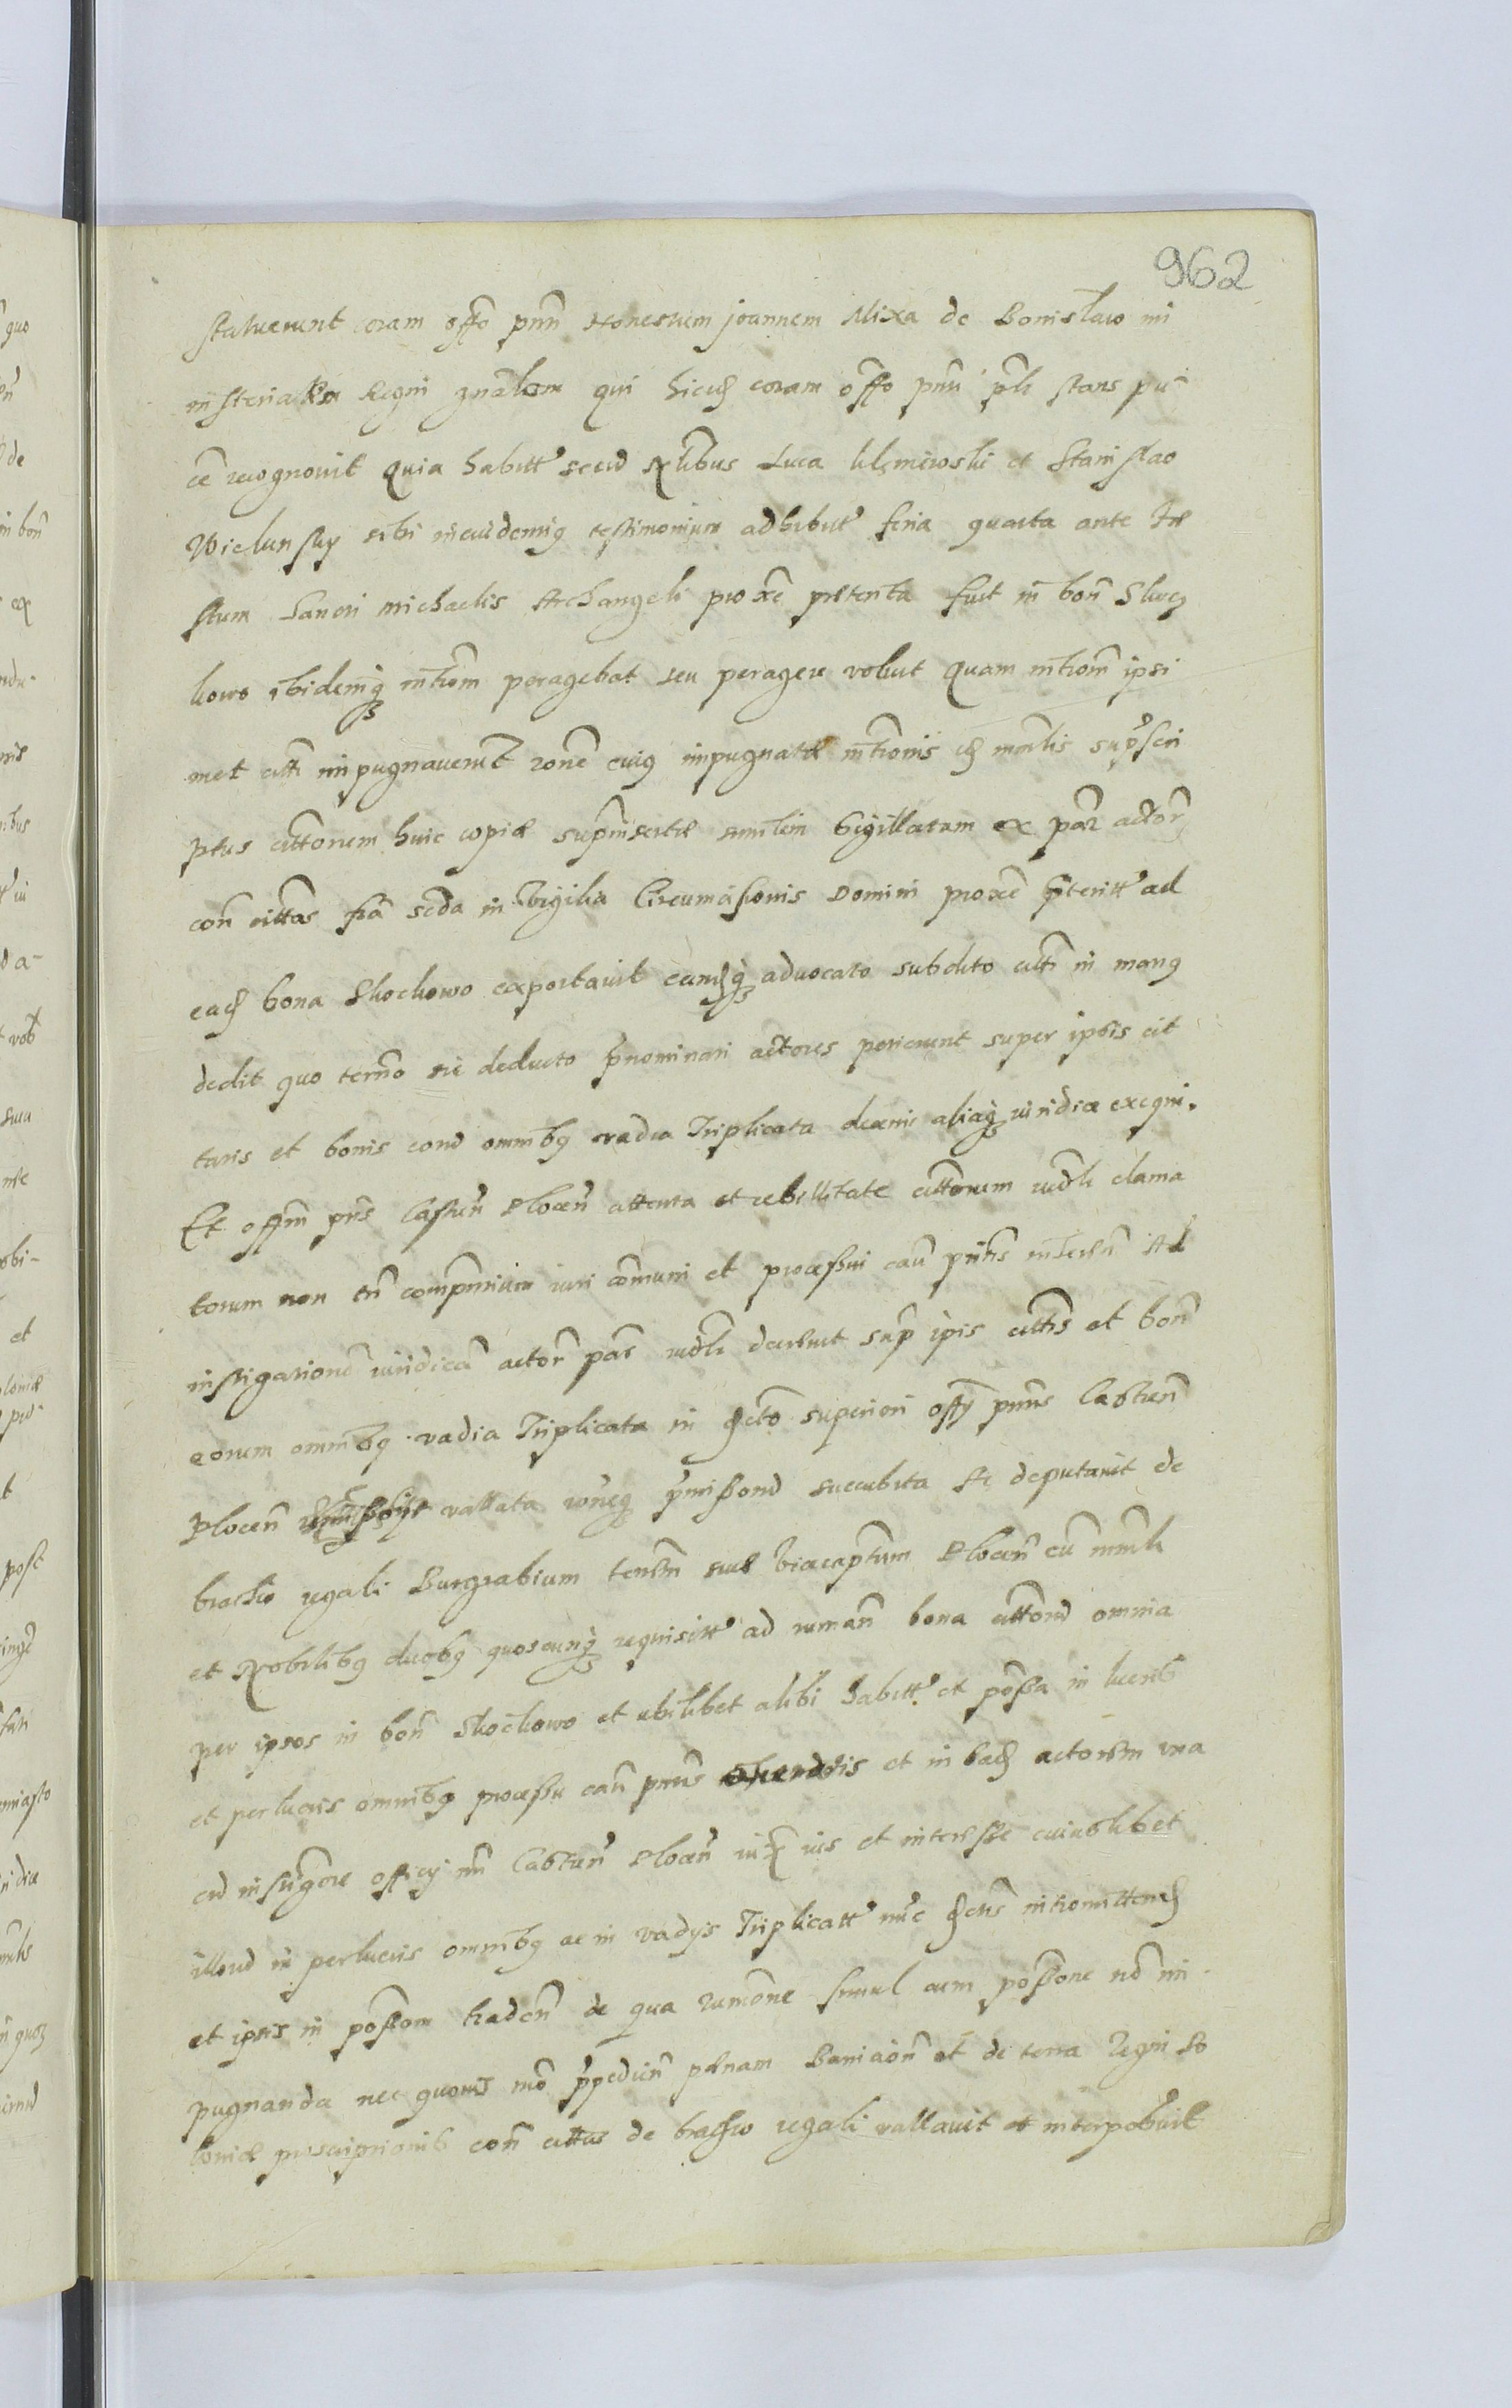 962
statuerunt coram offo pnn Honestum joannem Mixa de Bonislaw mi
nisterialem Regni gnalem qui hicq coram offo pnn pñr stans pu
ce recognovit quia habitt secu Nlibus Luca et Stanislao
Wielunsky sibi in euidemq testimonium adhibitt feria quarta ante Fe
stum Sancti Michaelis Archangeli proxe preterita fuit in bon
kowo ibidemq intiom peragebat seu peragere voluit quam intiom ipsi
met citti impugnaverut rone cuiq impugnatæ intionis mnrlis suprscri
ptus cittorum huic copiæ suprinsertæ similem Sigillatam ex par actor
con cittas fria scda in Vigilia Circumcisionis Domini proxe prteritt ad
eadq bona Skockowo exportavit eamqq advocato subdito citti in manq
dedit quo termo sic deducto prnominati actores petierunt super ipsis cit
tatis et bonis eorud omnibq vadia Triplicata decerni aliaqq iuridica exequi.
Et offm pns Castren Plocen attenta et rebellitate cittorum iudli clama
torum non tn compnium iuri comuni et processui cau pntis inserũ Ad
instigationem iuridicam actor par iudli decrevit sup ipis cittis et bon
eorum omnibq vadia Triplicata in dcto superiori offy pnns Castren
Plocen vallata roneq prmissord succubita Ac deputavit de
brachio regali Burgrabium tenrem sive vicecaptum Plocen cu mnrli
et Nobilibq duobq quoscunqq requisitt ad ruman bona cittord omnia
per ipsos in bon Skockowo et ubilibet alibi habitt et possa in lucris
et perlucris omnibq processu cau pnns et in eadq actorem una
cu insrigore officy nri Castren Plocen iux ius et interesse cuiuslibet
illorud in perlucris omnibq ac in vadys Triplicatt nuc dctis intromittendq
et ipsis in possiom traden de qua rumone simul cum possione no im
pugnanda nec quovis mo prpedien pænam Banicion et de terra Regni Po
loniæ proscriptionis con cittus de brachio regali vallavit et interposuit